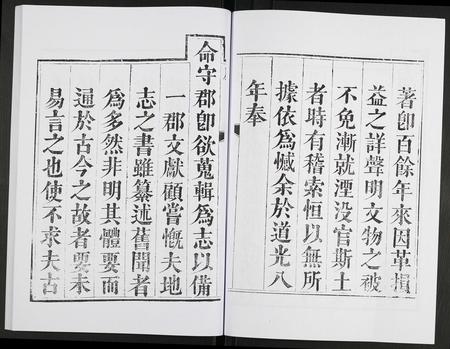 著卽百餘年來因革損
益之詳聲明文物之被
不免漸就湮没官斯土
者時有稽索恒以無所
據依爲憾余於道光八
年奉
命守郡卽欲蒐輯爲志以備
一郡文獻顧嘗慨夫地
志之書雖纂述舊聞者
爲多然非明其體要而
通於古今之故者要未
易言之也使不求夫古